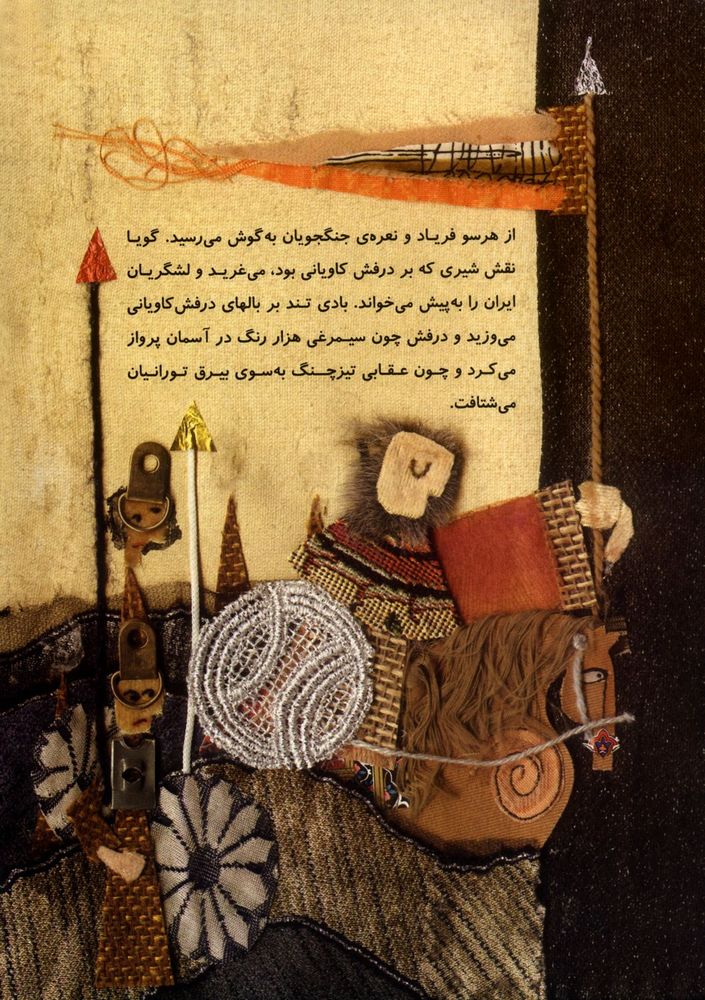 از هرسو فریاد و نعره‌ی جنگجویان به‌گوش می‌رسید. گویا
نقش شیری که بر درفش کاویانی بود، می‌غرید و لشگریان
ایران را به‌پیش می‌خواند. بادی تند بر بالهای درفش‌کاویانی
می‌وزید و درفش چون سیمرغی هزار رنگ در آسمان پرواز
می‌کرد و چون عقابی تیزچنگ به‌سوی بیرق تورانیان
می‌شتافت.